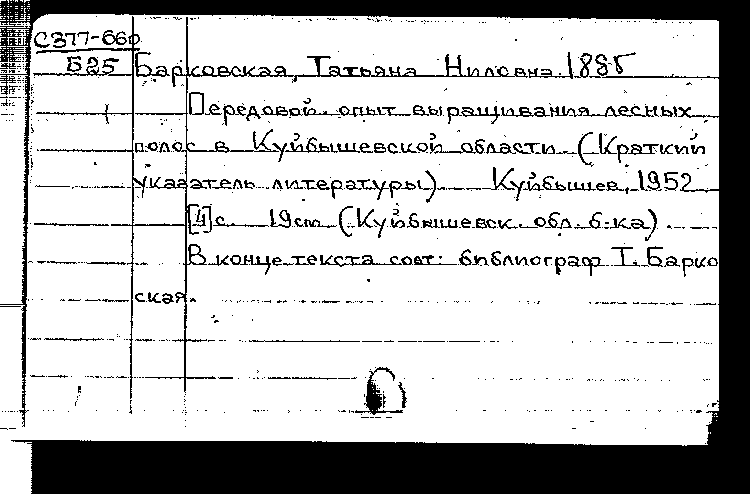 С377-660
Б25 Барковская, Татьяна Ниловна 1885
Передовой опыт выращивания лесных
полос в Куйбышевской области (Краткий
указатель литературы) Куйбышев, 1952
[4] с. 19 cm (Куйбышевск. обл. б-ка).
В конце текста сост: библиограф Т. Барко
ская.